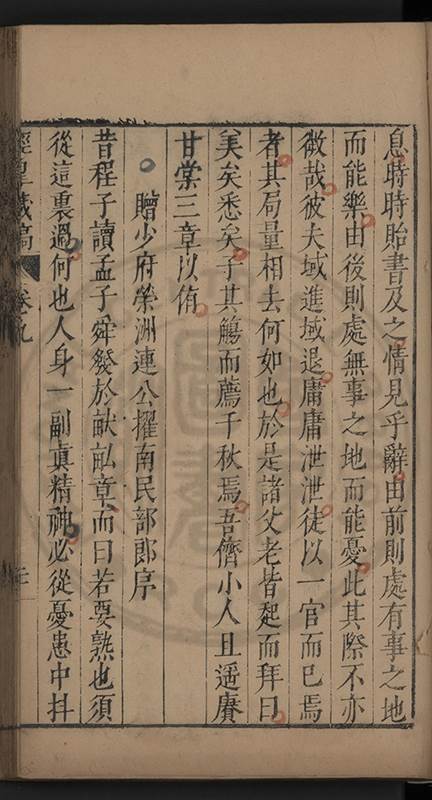 息時時貽書及之情見乎辭由前則處有事之地
而能樂由後則處無事之地而能憂此其際不亦
微哉彼夫域進域退庸庸泄泄徒以一官而已焉
者其局量相去何如也於是諸父老皆起而拜曰
美矣悉矣子其觴而薦千秋焉吾儕小人且遥賡
甘棠三章以侑
贈少府榮洲連公擢南民部郎序
昔程子讀孟子舜發於畎畝章而曰若要熟也須
從這裏過何也人身一副真精神必從憂患中抖
涇臯藏稿
卷九